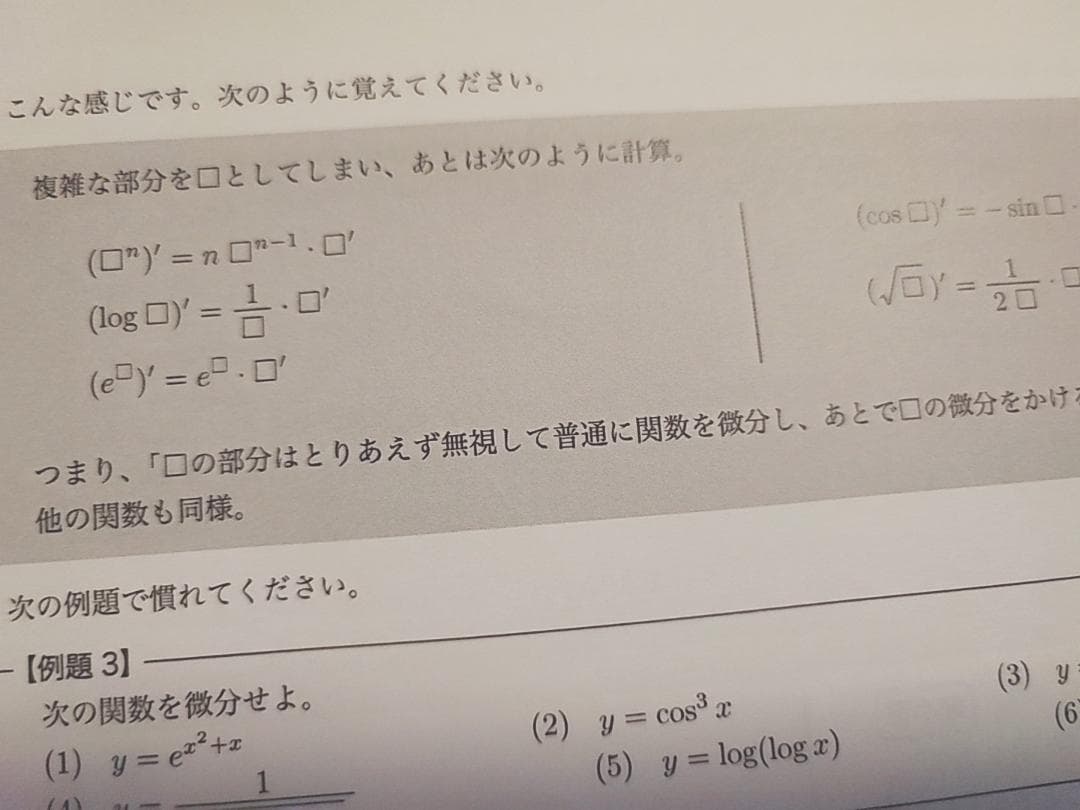 こんな感じです。次のように覚えてください。
複雑な部分を□としてしまい、あとは次のように計算。
(□ⁿ)′ = n □ⁿ⁻¹ · □′
(log □)′ = 1/□ · □′
(e^□)′ = e^□ · □′
(cos □)′ = − sin □ ·
(√□)′ = 1/(2 □) · □
つまり、「□の部分はとりあえず無視して普通に関数を微分し、あとで□の微分をかける
他の関数も同様。
次の例題で慣れてください。
【例題 3】
次の関数を微分せよ。
(1) y = e^(x²+x)
(2) y = cos³ x
(3) y =
(4) y = 1
(5) y = log(log x)
(6)